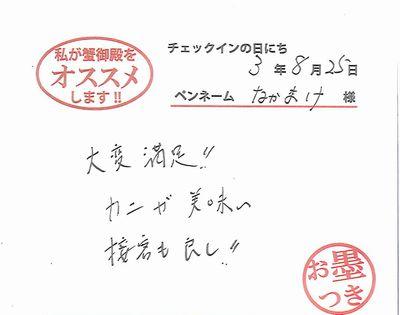 私が蟹御殿を
オススメ
します!!
チェックインの日にち
3年8月25日
ペンネーム なかまけ 様
大変満足!!
カニが美味い
接客も良し!!
お墨
つき